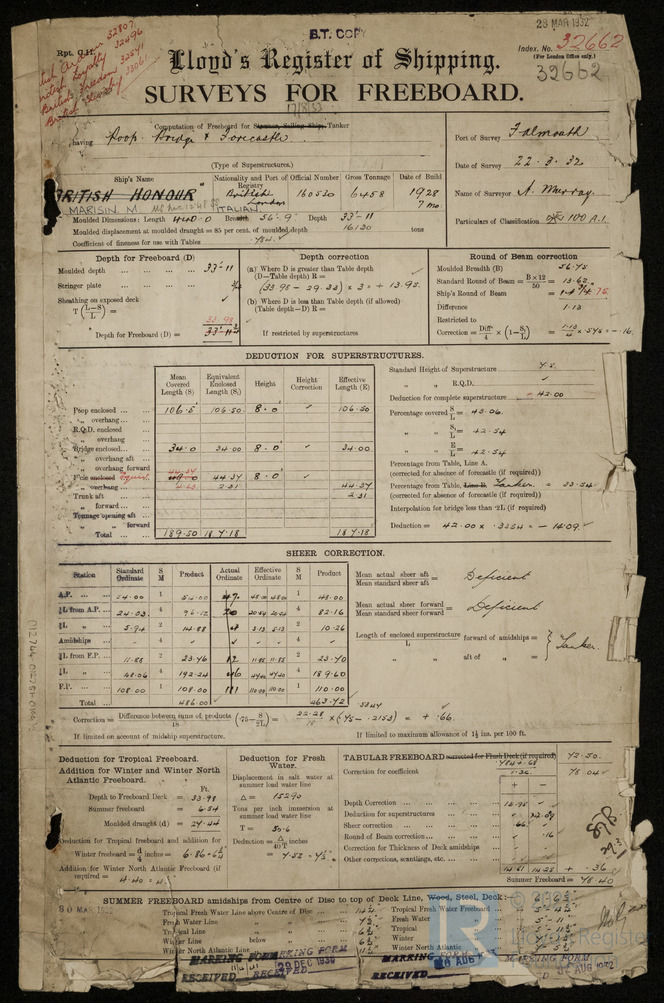 B.T. COPY
23 MAR 1932
Rpt. C.11.
32807
32496
32541
33061
British Loyalty
British Freedom
Lloyd's Register of Shipping.
Index. No. 32662
(For London Office only.)
32662
SURVEYS FOR FREEBOARD.
Computation of Freeboard for Steamer, Sailing Ship, Tanker
having Poop Bridge & Forecastle
(Type of Superstructures.)
Port of Survey Falmouth
Date of Survey 22.3.32
Name of Surveyor A. Murray
Particulars of Classification 100 A.1.
Ship's Name
Nationality and Port of Registry
Official Number
Gross Tonnage
Date of Build
"BRITISH HONOUR"
British London
160530
6458
1928
7 mo.
MARISIN. M.
ITALIAN
Moulded Dimensions: Length 440.0 Breadth 56'.9" Depth 33'-11
Moulded displacement at moulded draught = 85 per cent. of moulded depth 16120 tons
Coefficient of fineness for use with Tables .754
Depth for Freeboard (D)
Moulded depth ... ... 33'-11
Stringer plate ... ...
Sheathing on exposed deck
T (L-S/L) =
33.98
Depth for Freeboard (D) =
Depth correction
(a) Where D is greater than Table depth
(D—Table depth) R =
(33.98 - 29.33) × 3 = + 13.95
(b) Where D is less than Table depth (if allowed)
(Table depth—D) R =
If restricted by superstructures
Round of Beam correction
Moulded Breadth (B) 56.75
Standard Round of Beam = B×12/50 = 13.62
Ship's Round of Beam =
Difference 1.13
Restricted to
Correction = Diffce/4 × (1-S1/L) = 1.13/4 × .575 = -.16
DEDUCTION FOR SUPERSTRUCTURES.
Mean Covered Length (S)
Equivalent Enclosed Length (S1)
Height
Height Correction
Effective Length (E)
Poop enclosed ... 106.5 106.50 8.0 106.50
" overhang ...
R.Q.D. enclosed
" overhang
Bridge enclosed ... 34.0 34.00 8.0 34.00
" overhang aft ...
" overhang forward
F'cle enclosed 44.37 8.0 44.37
" overhang ... 2.31 2.31
Trunk aft ...
" forward ...
Tonnage opening aft ...
" " forward
Total ... 189.50 187.18 187.18
Standard Height of Superstructure 7.5
" " R.Q.D.
Deduction for complete superstructure 42.00
Percentage covered S/L = 43.06
" " S1/L = 42.54
" " E/L = 42.54
Percentage from Table, Line A.
(corrected for absence of forecastle (if required))
Percentage from Table, Line B. Tanker = 33.54
(corrected for absence of forecastle (if required))
Interpolation for bridge less than ·2L (if required)
Deduction = 42.00 × .3354 = - 14.09
SHEER CORRECTION.
Station
Standard Ordinate
S M
Product
Actual Ordinate
Effective Ordinate
S M
Product
A.P. ... 54.00 1 54.00 48.00 48.00 1 48.00
⅙L from A.P. ... 24.03 4 96.12 20 20.54 20.54 4 82.16
⅓L " ... 5.94 2 5.13 5.13 2 10.26
Amidships ... 4 4
⅓L from F.P. ... 11.88 2 23.76 2
⅙L " ... 48.06 4 192.24 46 4 189.60
F.P. ... 108.00 1 108.00 111 110.00 110.00 1 110.00
Total ... 486.00 463.72
Mean actual sheer aft / Mean standard sheer aft = Deficient
Mean actual sheer forward / Mean standard sheer forward = Deficient
Length of enclosed superstructure / L forward of amidships =
" " aft of " =
Tanker.
Correction = Difference between sums of products / 18 (·75 - S/2L) = 22.28/18 × (.75 - .2153) = + .66
.5347
If limited on account of midship superstructure.
If limited to maximum allowance of 1½ ins. per 100 ft.
Deduction for Tropical Freeboard.
Addition for Winter and Winter North Atlantic Freeboard.
Ft.
Depth to Freeboard Deck = 33.98
Summer freeboard = 6.54
Moulded draught (d) = 27.44
Deduction for Tropical freeboard and addition for
Winter freeboard = d/4 inches = 6.86
Addition for Winter North Atlantic Freeboard (if required) = 4.40
Deduction for Fresh Water.
Displacement in salt water at summer load water line
Δ = 15290
Tons per inch immersion at summer load water line
T = 50.6
Deduction = Δ/40T inches
= 7.52
TABULAR FREEBOARD corrected for Flush Deck (if required) 72.50
Correction for coefficient
.754 + .68
1.36
78.04
+ -
Depth Correction ... 13.95
Deduction for superstructures ... 14.09
Sheer correction ... .66
Round of Beam correction ... .16
Correction for Thickness of Deck amidships
Other corrections, scantlings, etc. ...
14.61 14.25 + .36
Summer Freeboard = 78.40
SUMMER FREEBOARD amidships from Centre of Disc to top of Deck Line, Wood, Steel, Deck:
30 MAR 1932
Tropical Fresh Water Line above Centre of Disc ...
Fresh Water Line " ...
Tropical Line " ...
Winter Line below " ...
Winter North Atlantic Line "
Tropical Fresh Water Freeboard
Fresh Water "
Tropical "
Winter "
Winter North Atlantic "
MARKING FORM
RECEIVED
MARKING FORM
RECEIVED
MARKING FORM
RECEIVED
MARKING FORM
Lloyd's Register